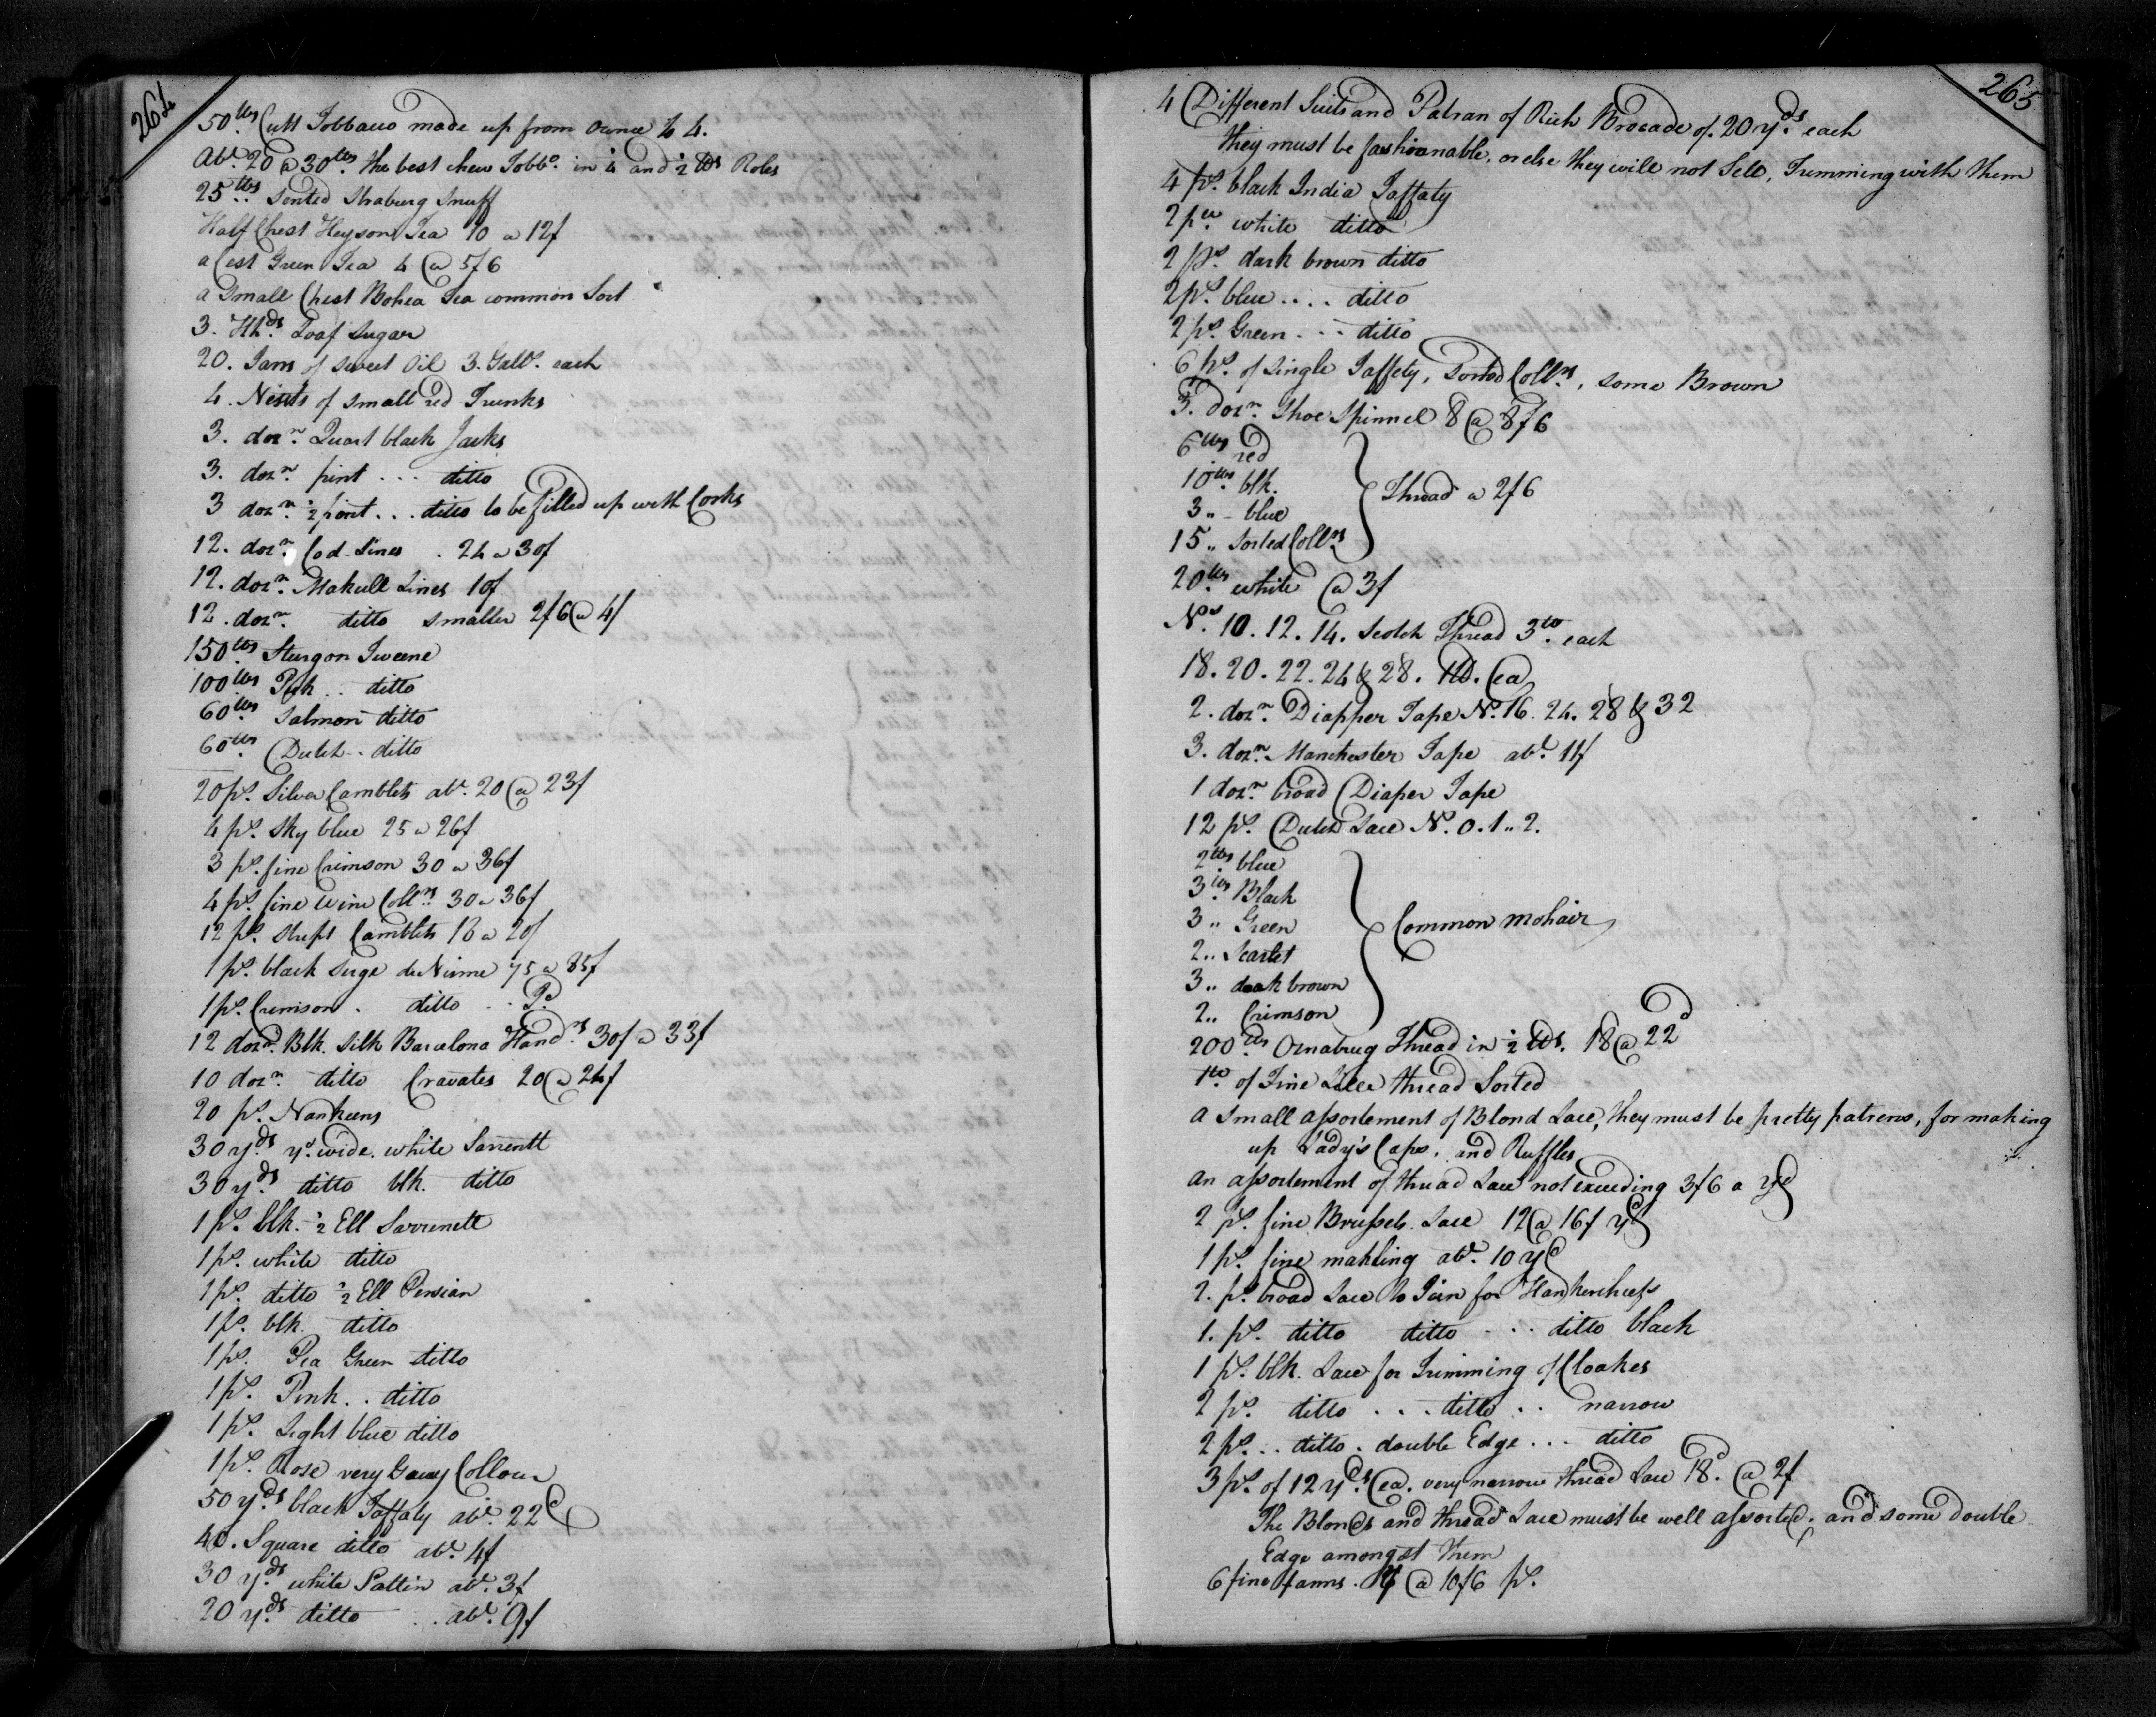 264
50 lbs. Cutt Tobbacco made up from ounce to 4.
Abt. 20 @ 30 lbs. the best chew Tobbo. in ¼ and ½ lbs Roles
25 lbs. Sented Straburg Snuff
Half Chest Heyson Tea 10 a 12/
a Cest Green Tea 4 @ 5/6
a Small Chest Bohea Tea common Sort
3. Hhds. Loaf Sugar
20. Jarrs of Sweet Oil 3. Galls. each
4. Nests of small red Trunks
3. dozn. Quart black Jacks
3. dozn. pint . . . ditto
3 dozn. ½ point . . . ditto to be filled up with Corks
12. dozn. Cod Lines . 24 a 30/
12. dozn. Makrell Lines 10/
12. dozn. ditto smaller 2/6 @ 4/
150 lbs. Sturgon Tweene
100 lbs. . . ditto
60 lbs. Salmon ditto
60 lbs. Dutch . . ditto
20 ps. Silver Camblets abt. 20 @ 23/
4 ps. Sky blue 25 a 26/
3 ps. fine Crimson 30 a 36/
4 ps. fine Wine Collrs. 30 a 36/
12 ps. Stript Camblets 16 a 20/
1 ps. black Serge de Nisme 75 a 85/
1 ps. Crimson . ditto . .
12 dozn. Blk. Silk Barcelona Handrs. 30/ a 33/
10 dozn. ditto Cravates 20 @ 24/
20 ps. Nankeens
30 yds. yd. wide. white Sarrentt
30 yds. ditto blk. ditto
1 ps. blk. ½ Ell Sarrenett
1 ps. white ditto
1 ps. ditto ½ Ell Persian
1 ps. blk. ditto
1 ps. Pea Green ditto
1 ps. Pink . . ditto
1 ps. Light blue ditto
1 ps. Rose very Collour
50 yds. black Taffaty abt. 22d
40. Square ditto abt. 4/
30 yds. white Sattin abt. 3/
20 yds. ditto . . abt. 9/
265
4 Different Suits and Patran of Rich Brocade of. 20 yds. each
they must be fashionable, or else they will not Sell, Trimming with them
4 ps. black India Taffaty
2 ps. white ditto
2 ps. dark brown ditto
2 ps. blue . . . . ditto
2 ps. Green . . . ditto
6 ps. of single Taffety, Sorted Collrs., some Brown
3. dozn. Shoe Spinnel 8 @ 8/6
6 lbs. red
10 lbs. blk.
3 „ - blue
15 „ Sorted Collrs.
Thread a 2/6
20 lbs. white @ 3/
No. 10. 12. 14. Scotch Thread 3 lb. each
18. 20. 22. 24 & 28. 1 lb. Ea
2. dozn. Diapper Tape No. 16. 24. 28 & 32
3. dozn. Manchester Tape abt. 11/
1 dozn. broad Diaper Tape
12 ps. Dutch Lace No. 0. 1 „ 2.
2 lbs. blue
3 lbs. Black
3 „ Green
2 „ Scarlet
3 „ dark brown
2 „ Crimson
Common mohair
200 lbs. Oznabrug Thread in ½ lbs. 18 @ 22d
1 lb. of Fine Lace thread Sorted
a small assortement of Blond Lace, they must be pretty patrens, for making
up Lady's Caps. and Ruffles
an assortement of thread Lace not exceeding 3/6 a yd
2 ps. fine Brussels Lace 12 @ 16/ yd
1 ps. fine makling abt. 10 yd
2. ps. broad Lace to Join for Hankercheefs
1. ps. ditto ditto . . . ditto black
1 ps. blk. Lace for Trimming of Cloakes
2 ps. ditto . . . ditto . . narrow
2 ps. . . ditto . double Edge . . . ditto
3 ps. of 12 yds. Ea. very narrow thread Lace 18d. @ 2/
The Blonds and thread Lace must be well assorted, and some double
Edge amongst them
6 fine fanns. @ 10/6 ps.